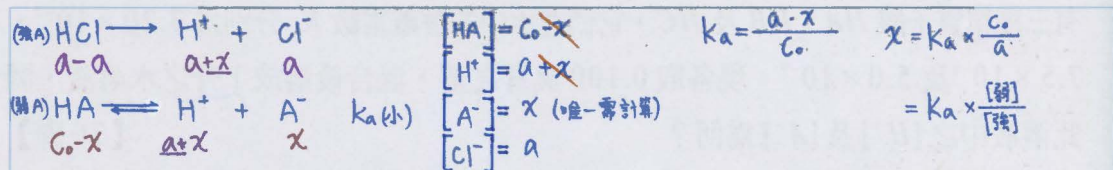 (強A) HCl → H⁺ + Cl⁻
a-a a+x a
(弱A) HA ⇌ H⁺ + A⁻ Ka(小)
C₀-x a+x x
[HA] = C₀-x
[H⁺] = a+x
[A⁻] = x (唯一需計算)
[Cl⁻] = a
Ka = a·x / C₀
x = Ka × C₀/a
= Ka × [弱]/[強]